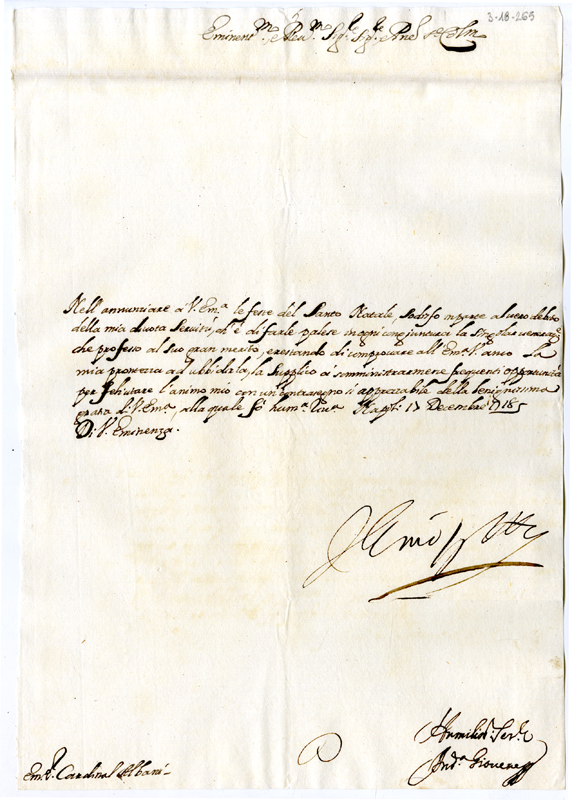 3-18-265
Eminent.mo e Rev.mo Sig.re Sig.re P.ne Col.mo
Nell'annunziare à V. Em.a le feste del Santo Natale sodisfo in parte al vero debito
della mia divota servitù, ch'è di farle palese in ogni congiuntura la singolar veneraz.e
che professo al suo gran merito, e restando di comprovare all'Em.a V. anco la
mia prontezza ad ubbidirla, la supplico à somministrarmene frequenti opportunità
per felicitare l'animo mio con un contrasegno sì apprezzabile della benignissima
grazia di V. Em.a, alla quale fò hum.a river.a Nap.li 17 Decembre 1718
Di V. Eminenza.
Em.o S. Cardinal Albani
Humiliss. Ser.re
And.a Giovene